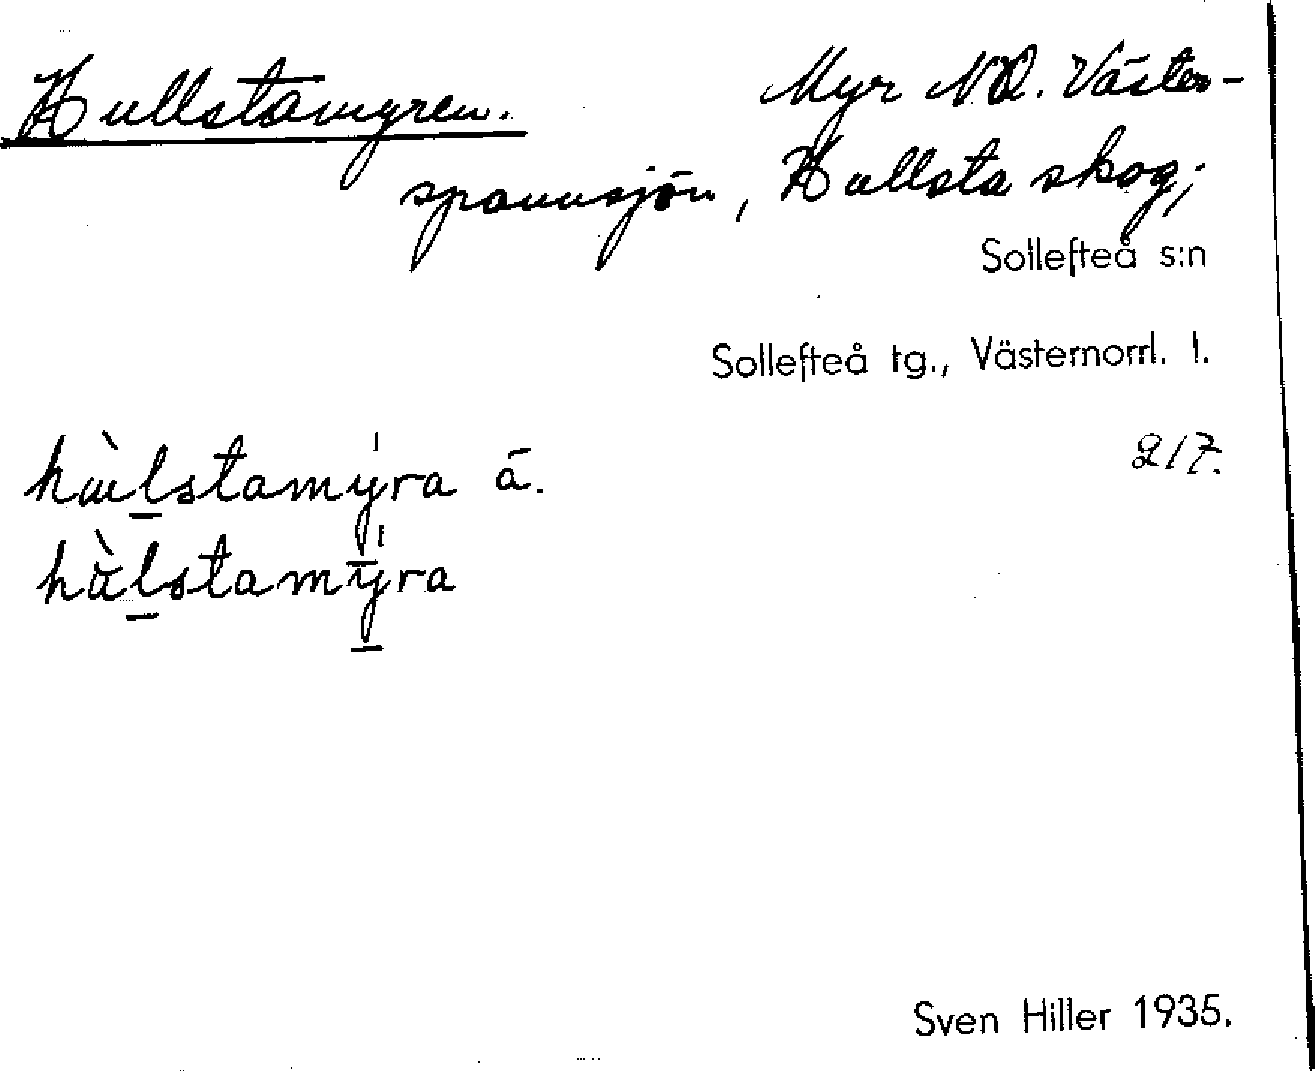 Hullstamyren. Myr NO. Väster-
spannsjön, Hullsta skog;
Sollefteå s:n
Sollefteå tg., Västernorrl. l.
217.
hùlstamy̍ra ā.
hùlstamy̍ra
Sven Hiller 1935.